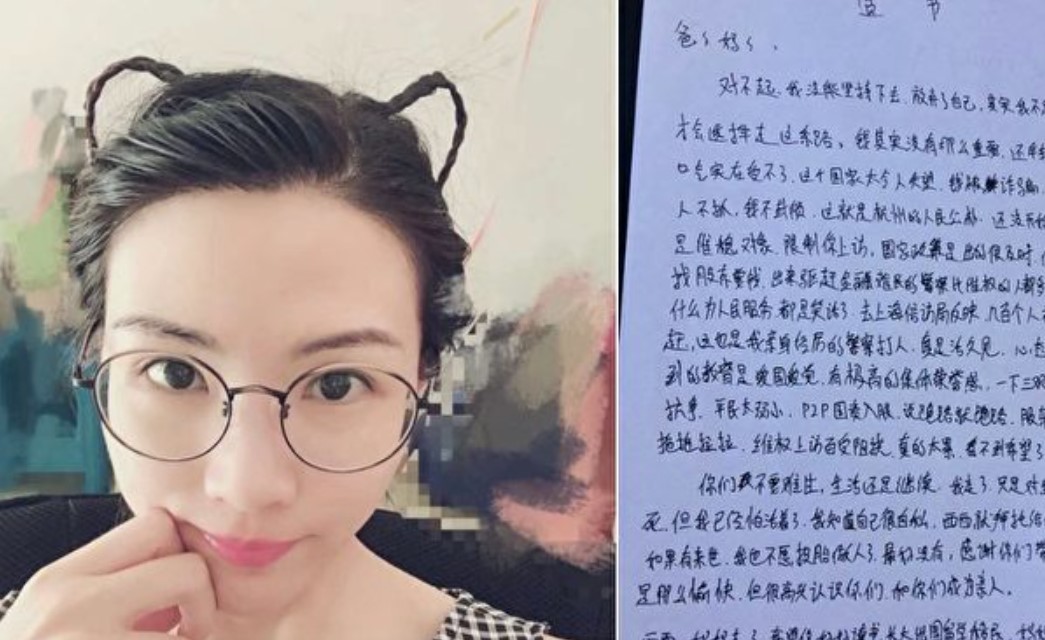 遗书
爸爸妈妈、
对不起、我没能坚持下去、放弃了自己,其实我不
才会选择走这条路。钱其实没有那么重要、还
口气实在受不了、这个国家太令人失望、钱被 诈骗
人不抓、我不 、这就是杭州的人民公 、还没
是维稳对象、限制你上访、国家政策是 的
我 股东要钱、出来驱赶金融难民的警察比维权的人都
什么为人民服务都是笑话了、去上海信访局反映、几百个人
赶、这也是我亲身经历的警察打人、真是活久见、
到的教育是爱国爱党、有极高的集体荣誉感、一下
、平民太弱小、P2P国 入股、说跑路就跑路、股东
拖拖拉拉、维权上访百受阻挠、真的太累、看不到希望了
你们不要难过、生活还是继续、我走了、只是对
死、但我已经怕活着了、我知道自己很自私、西西就拜托给
如果有来世、我也不愿投胎做人了、 没有、感谢你们
是那么愉快、但很高兴认识你们、和你们成为亲人。